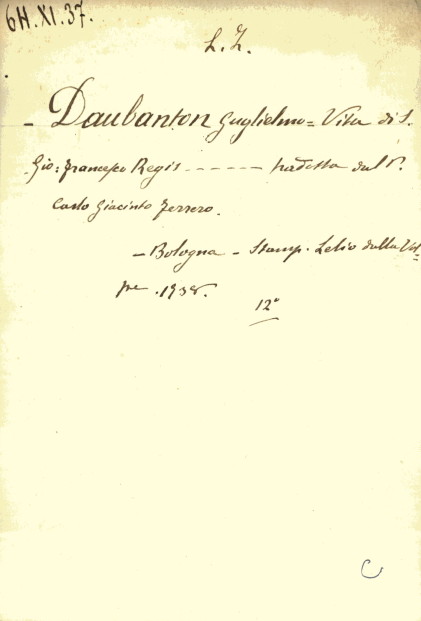 6H.XI.37.
L. Z.
- Daubanton Guglielmo = Vita di S.
Gio: Francesco Regis - - - - - - tradotta dal P.
Carlo Giacinto Ferrero.
- Bologna - Stamp. Lelio dalla Vol=
pe . 1738.
12°
C